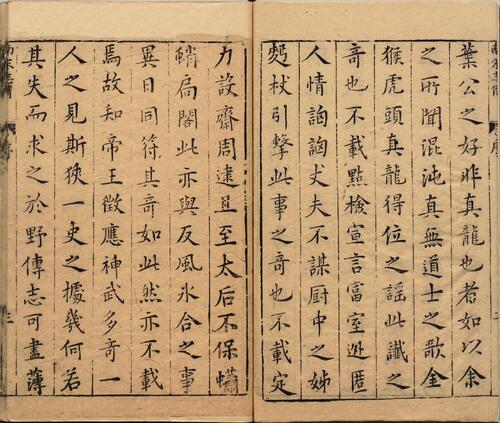 葉公之好非真龍也者如以余
之所聞混沌真無道士之歌金
猴虎頭真龍得位之謡此讖之
奇也不載點檢宣言富室迯匿
人情訩訩丈夫不謀厨中之姊
麪杖引擊此事之奇也不載定
力設齋周逮且至太后不保蠨
蛸扃閣此亦與反風氷合之事
異日同符其奇如此然亦不載
焉故知帝王徴應神武多奇一
人之見斯狹一史之據幾何若
其失而求之於野傳志可盡薄
序
三